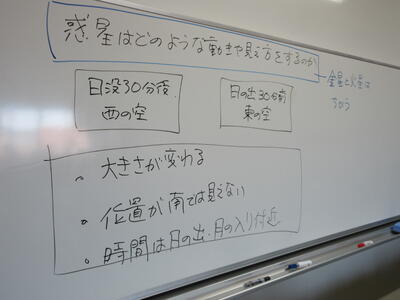 惑星はどのような動きや見え方をするのか
金星と火星は
ちがう
日没30分後
西の空
日の出30分前
東の空
。大きさが変わる
。位置が南では見えない
。時間は日の出・月の入り付近